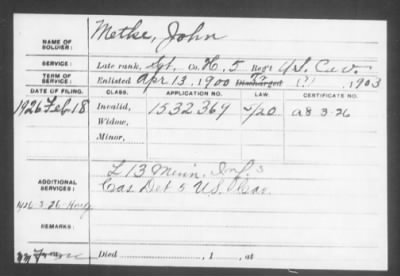 NAME OF SOLDIER: Metke, John
SERVICE: Late rank, Sgt. Co. H, 5 Reg't U.S. Cav.
TERM OF SERVICE: Enlisted Apr. 13, 1900 Discharged , 1903
DATE OF FILING. CLASS. APPLICATION NO. LAW. CERTIFICATE NO.
1926 Feb. 18 Invalid, 1532369 3-26
Widow,
Minor,
ADDITIONAL SERVICES: L 13 Minn. Inf.
Cas Det 5 U.S. Cav.
REMARKS:
Died , 1 , at